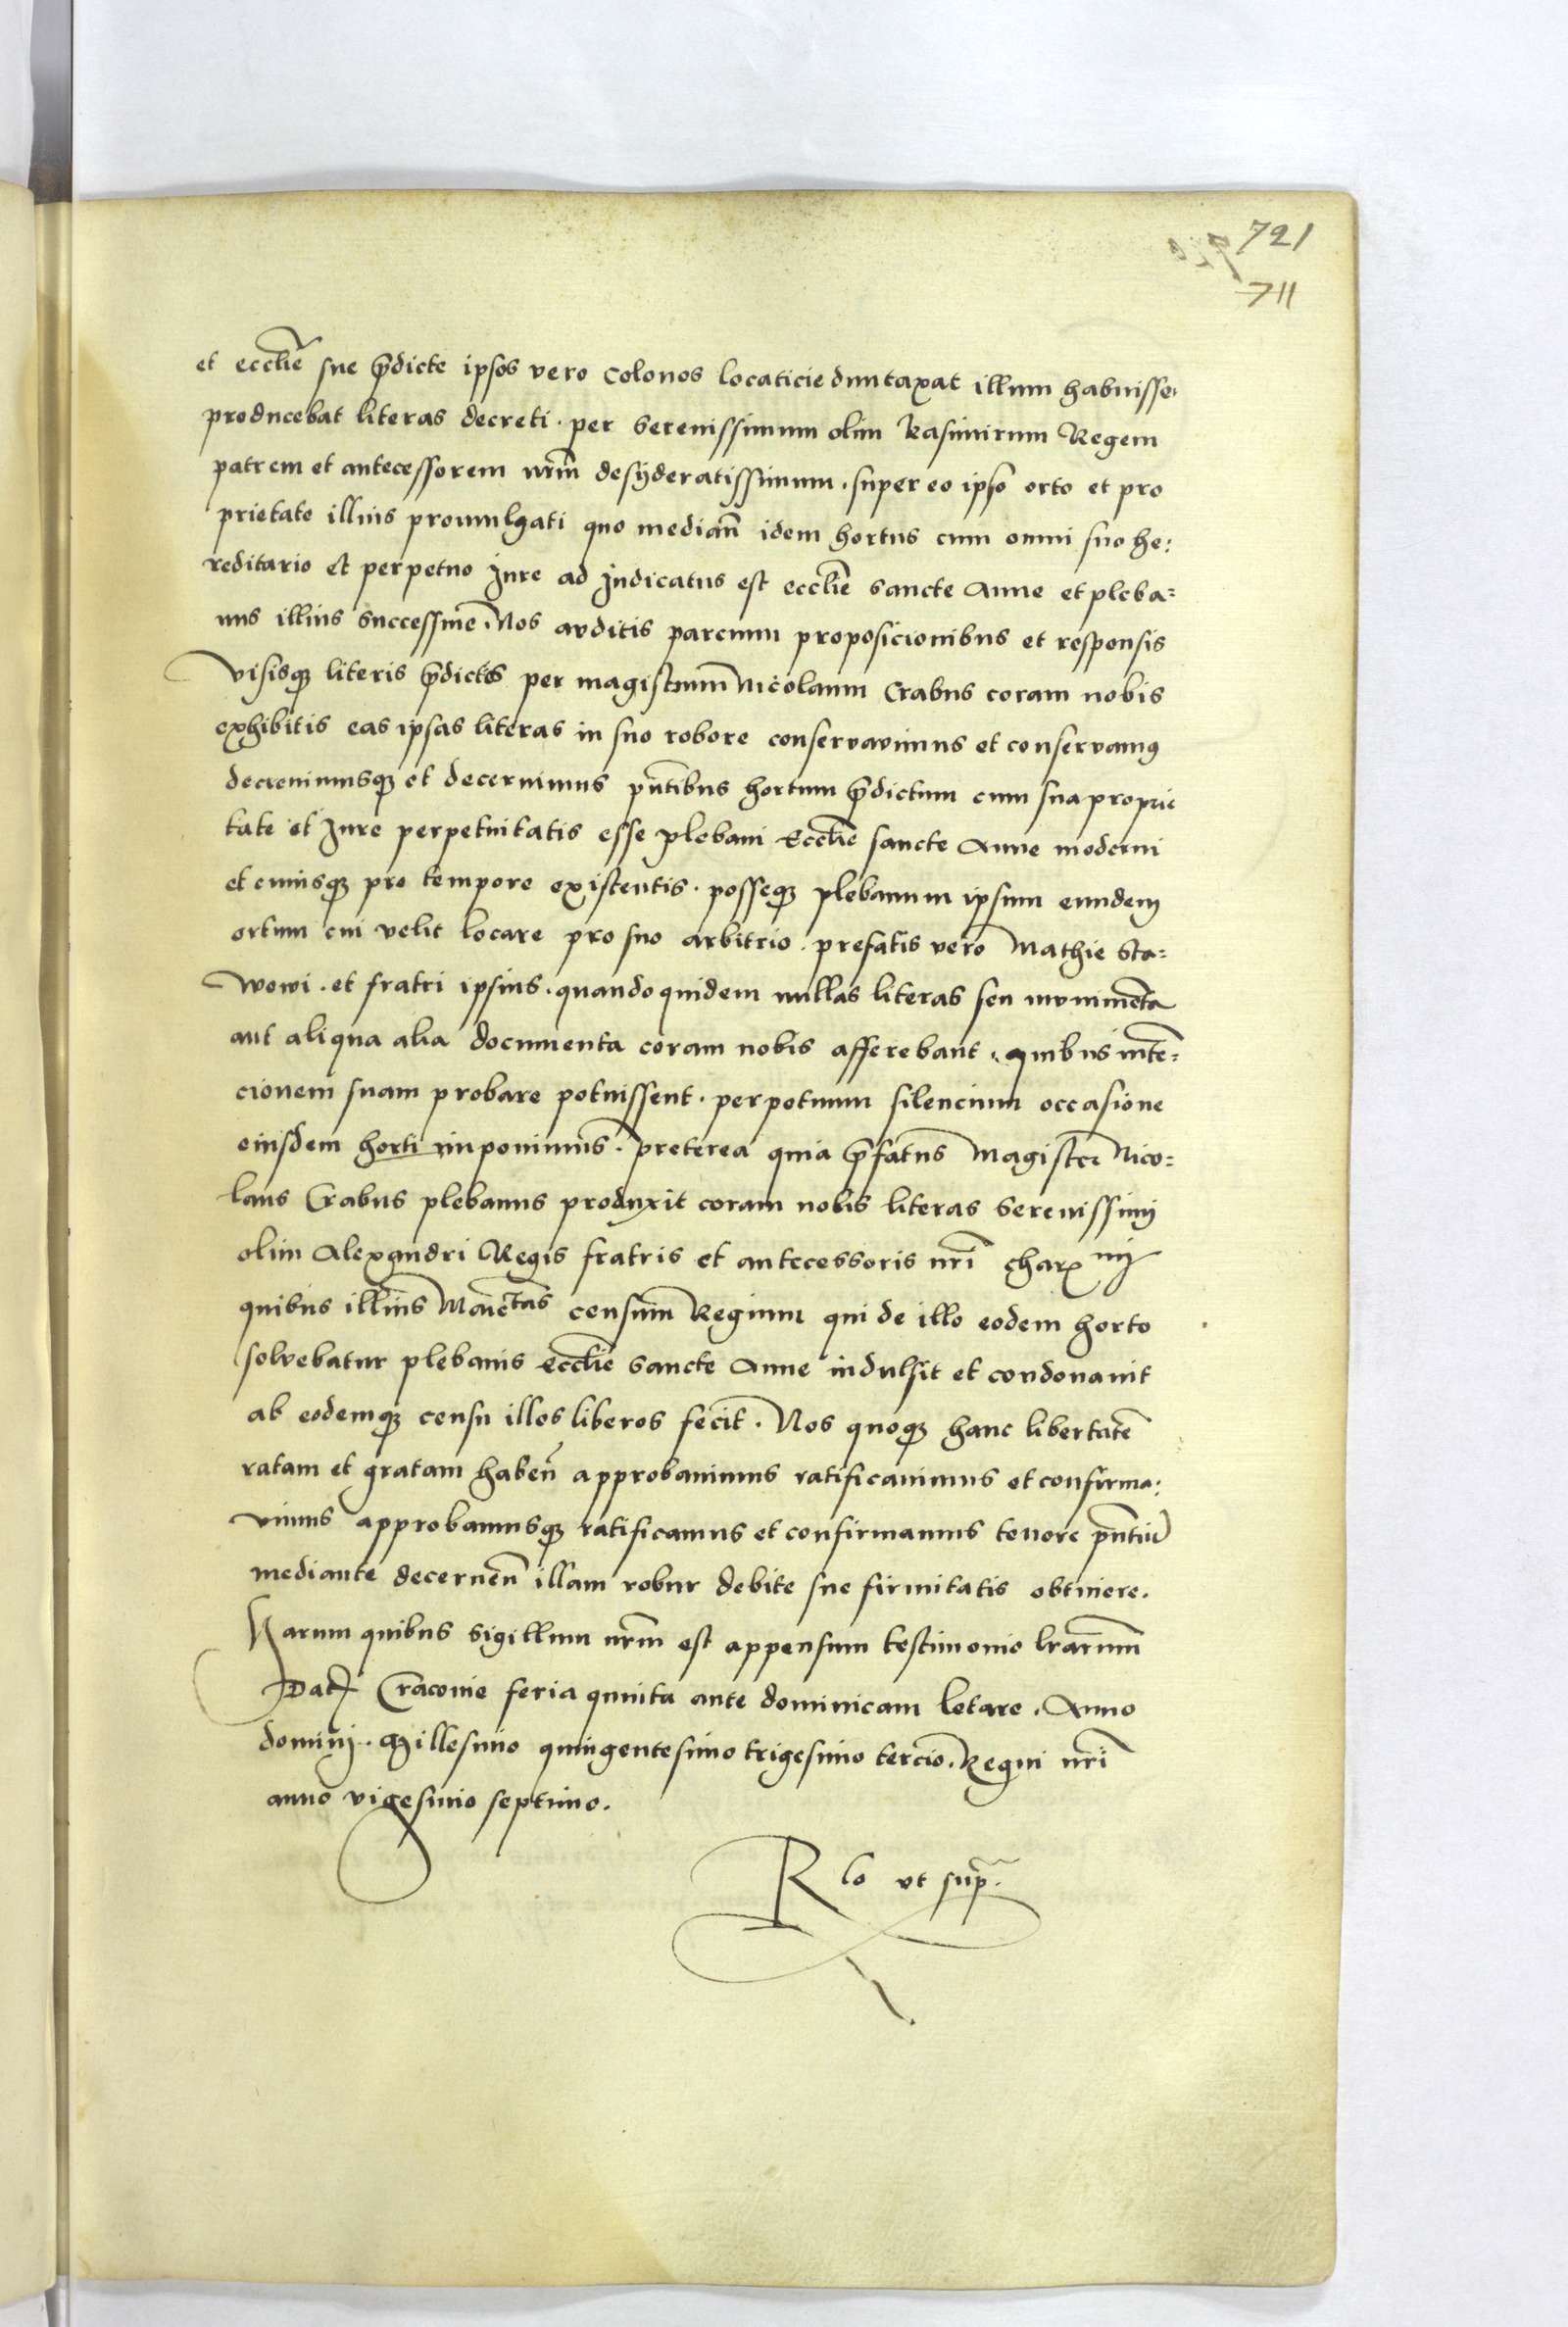 721
711
et ecclie͠ sue p͠dicte ipsos vero colonos locaticie duntaxat illum habuisse
producebat literas decreti · per serenissimum olim kasimirum Regem
patrem et antecessorem nr͠m desyderatissimum · super eo ipso orto et pro
prietate illius promulgati quo median͠ idem hortus cum omni suo he:
reditario et perpetuo Jure ad Judicatus est ecclie͠ sancte Anne et pleba=
nus illius successiue. Nos auditis parcium proposicionibus et responsis
visisqz literis p͠dictis per magistrum Nicolaum Crabus coram nobis
exhibitis eas ipsas literas in suo robore conservavimus et conservamus
decrevimusqz et decernimus pn͠tibus hortum p͠dictum cum sua proprie
tate et Jure perpetuitatis esse plebani Ecclie͠ sancte Anne moderni
et cuiusqz pro tempore existentis · posseqz plebanum ipsum eundem
ortum cui velit locare pro suo arbitrio · prefatis vero Mathie Sta=
wowi · et fratri ipsius · quando quidem nullas literas seu munimen͠ta
aut aliqua alia documenta coram nobis afferebant · quibus inte͠=
cionem suam probare potuissent · perpetuum silencium occasione
eiusdem horti imponimus · preterea quia p͠fatus Magister Nico=
laus Crabus plebanus produxit coram nobis literas Serenissimi
olim Alexandri Regis fratris et antecessoris nr͠i charmi
quibus illius Maiestas censum Regium qui de illo eodem horto
solvebatur plebanis ecclie͠ sancte Anne indulsit et condonavit
ab eodemqz censu illos liberos fecit · Nos quoqz hanc libertate͠
ratam et gratam haben͠ approbavimus ratificavimus et confirma:
vimus approbamusqz ratificamus et confirmamus tenore pn͠tiu͠
mediante decernen͠ illam robur debite sue firmitatis obtinere.
Harum quibus sigillum nr͠m est appensum testimonio lr͠arum
Dat Cracovie feria quinta ante dominicam letare · Anno
dominj · Millesimo quingentesimo trigesimo tercio. Regni nr͠i
anno vigesimo septimo.
Rlo vt sup͠.